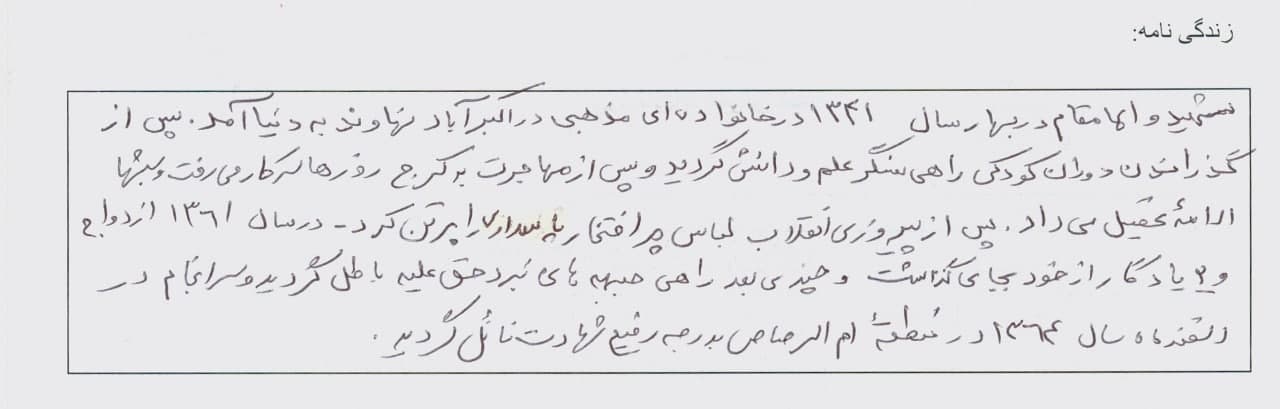 زندگی نامه:
شهید والامقام در بهار سال ۱۳۴۱ در خانواده ای مذهبی در اکبرآباد نهاوند به دنیا آمد. پس از
گذراندن دوران کودکی راهی سنگر علم و دانش گردید و پس از مهاجرت به کرج روزها سرکار می رفت و شبها
ادامهٔ تحصیل می داد. پس از پیروزی انقلاب لباس پر افتخار پاسداری را برتن کرد - در سال ۱۳۶۱ ازدواج
و ۲ یادگار از خود بجای گذاشت و چندی بعد راهی جبهه های نبرد حق علیه باطل گردید و سرانجام در
اسفندماه سال ۱۳۶۴ در منطقهٔ ام الرصاص بدرجه رفیع شهادت نائل گردید.